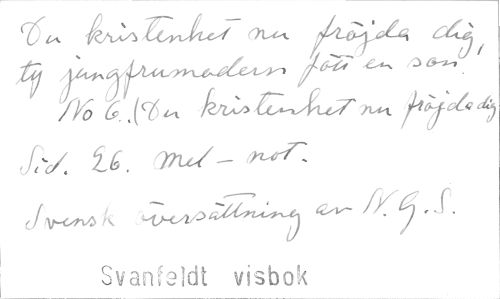 Du kristenhet nu fröjda dig,
ty jungfrumodern fött en son.
No 6. (Du kristenhet nu fröjda dig
Sid. 26. mel-not.
Svensk översättning av N. G. S.
Svanfeldt visbok